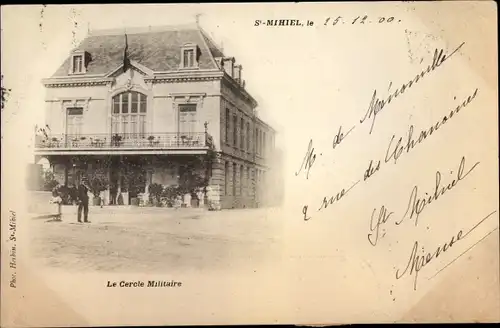 St-MIHIEL, le 25.12.00.
M. de Ménonville
2 rue des Chanoines
St. Mihiel
Meuse
Le Cercle Militaire
Phot. Herbin, St-Mihiel